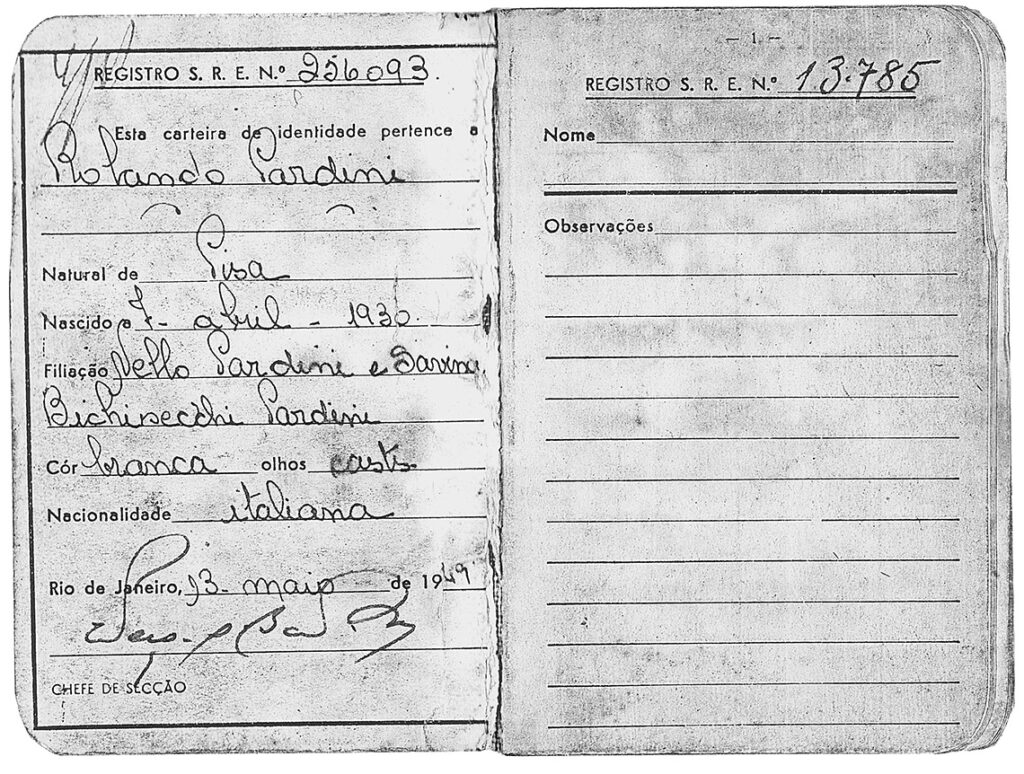 REGISTRO S. R. E. N.º 256093.
Esta carteira de identidade pertence a
Rolando Pardini
Natural de Pisa
Nascido a 7- abril - 1930.
Filiação Nello Pardini e Savina
Bichisecchi Pardini
Côr branca olhos casts.
Nacionalidade italiana
Rio de Janeiro, 13- maio de 1949
CHEFE DE SECÇÃO
- 1. -
REGISTRO S. R. E. N.º 13.785
Nome
Observações